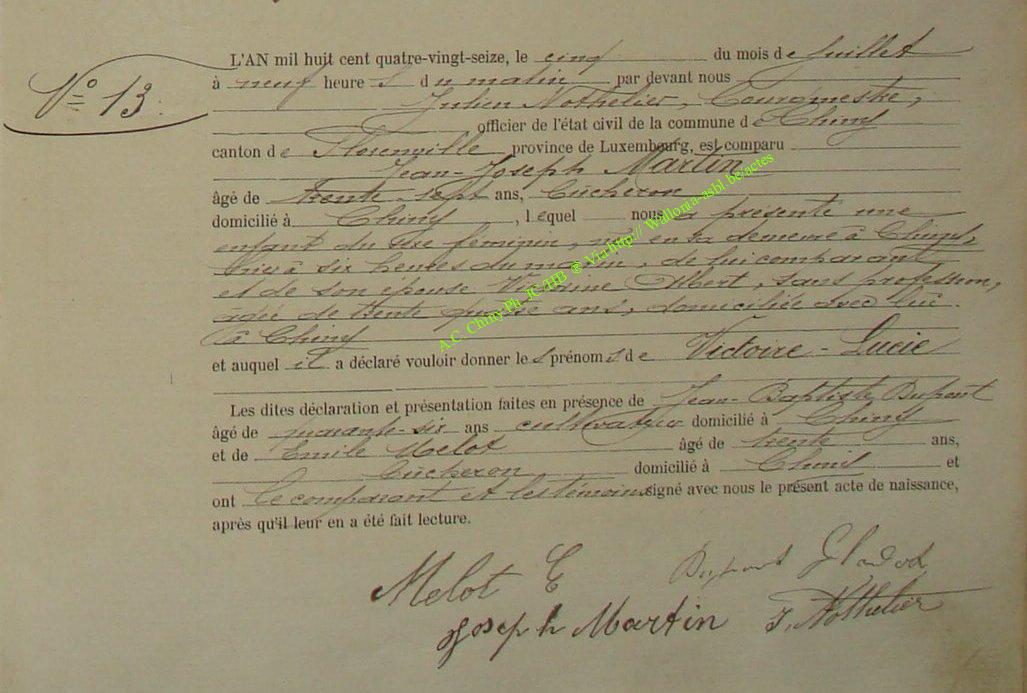 N° 13.
L'AN mil huit cent quatre-vingt-seize, le cinq du mois de Juillet
à neuf heure s du matin par devant nous
Julien Nothelier, Bourgmestre,
officier de l'état civil de la commune de Chiny
canton de Florenville province de Luxembourg, est comparu
Jean-Joseph Martin
âgé de trente-sept ans, bûcheron
domicilié à Chiny, lequel nous a présenté une
enfant du sexe féminin, née en sa demeure à Chiny,
hier à six heures du matin, de lui comparant
et de son épouse Albert, sans profession,
âgée de trente quatre ans, domiciliée avec lui
à Chiny
et auquel il a déclaré vouloir donner le s prénom s de Victoire-Lucie
Les dites déclaration et présentation faites en présence de Jean-Baptiste Dupont
âgé de quarante-six ans cultivateur domicilié à Chiny
et de Emile Melot âgé de trente ans,
bûcheron domicilié à Chiny et
ont le comparant et les témoins signé avec nous le présent acte de naissance,
après qu'il leur en a été fait lecture.
Melot E Dupont
Joseph Martin J. Nothelier
A.C. Chiny Ph. JC/HB ® Via http:// Wallonia-asbl.be/actes